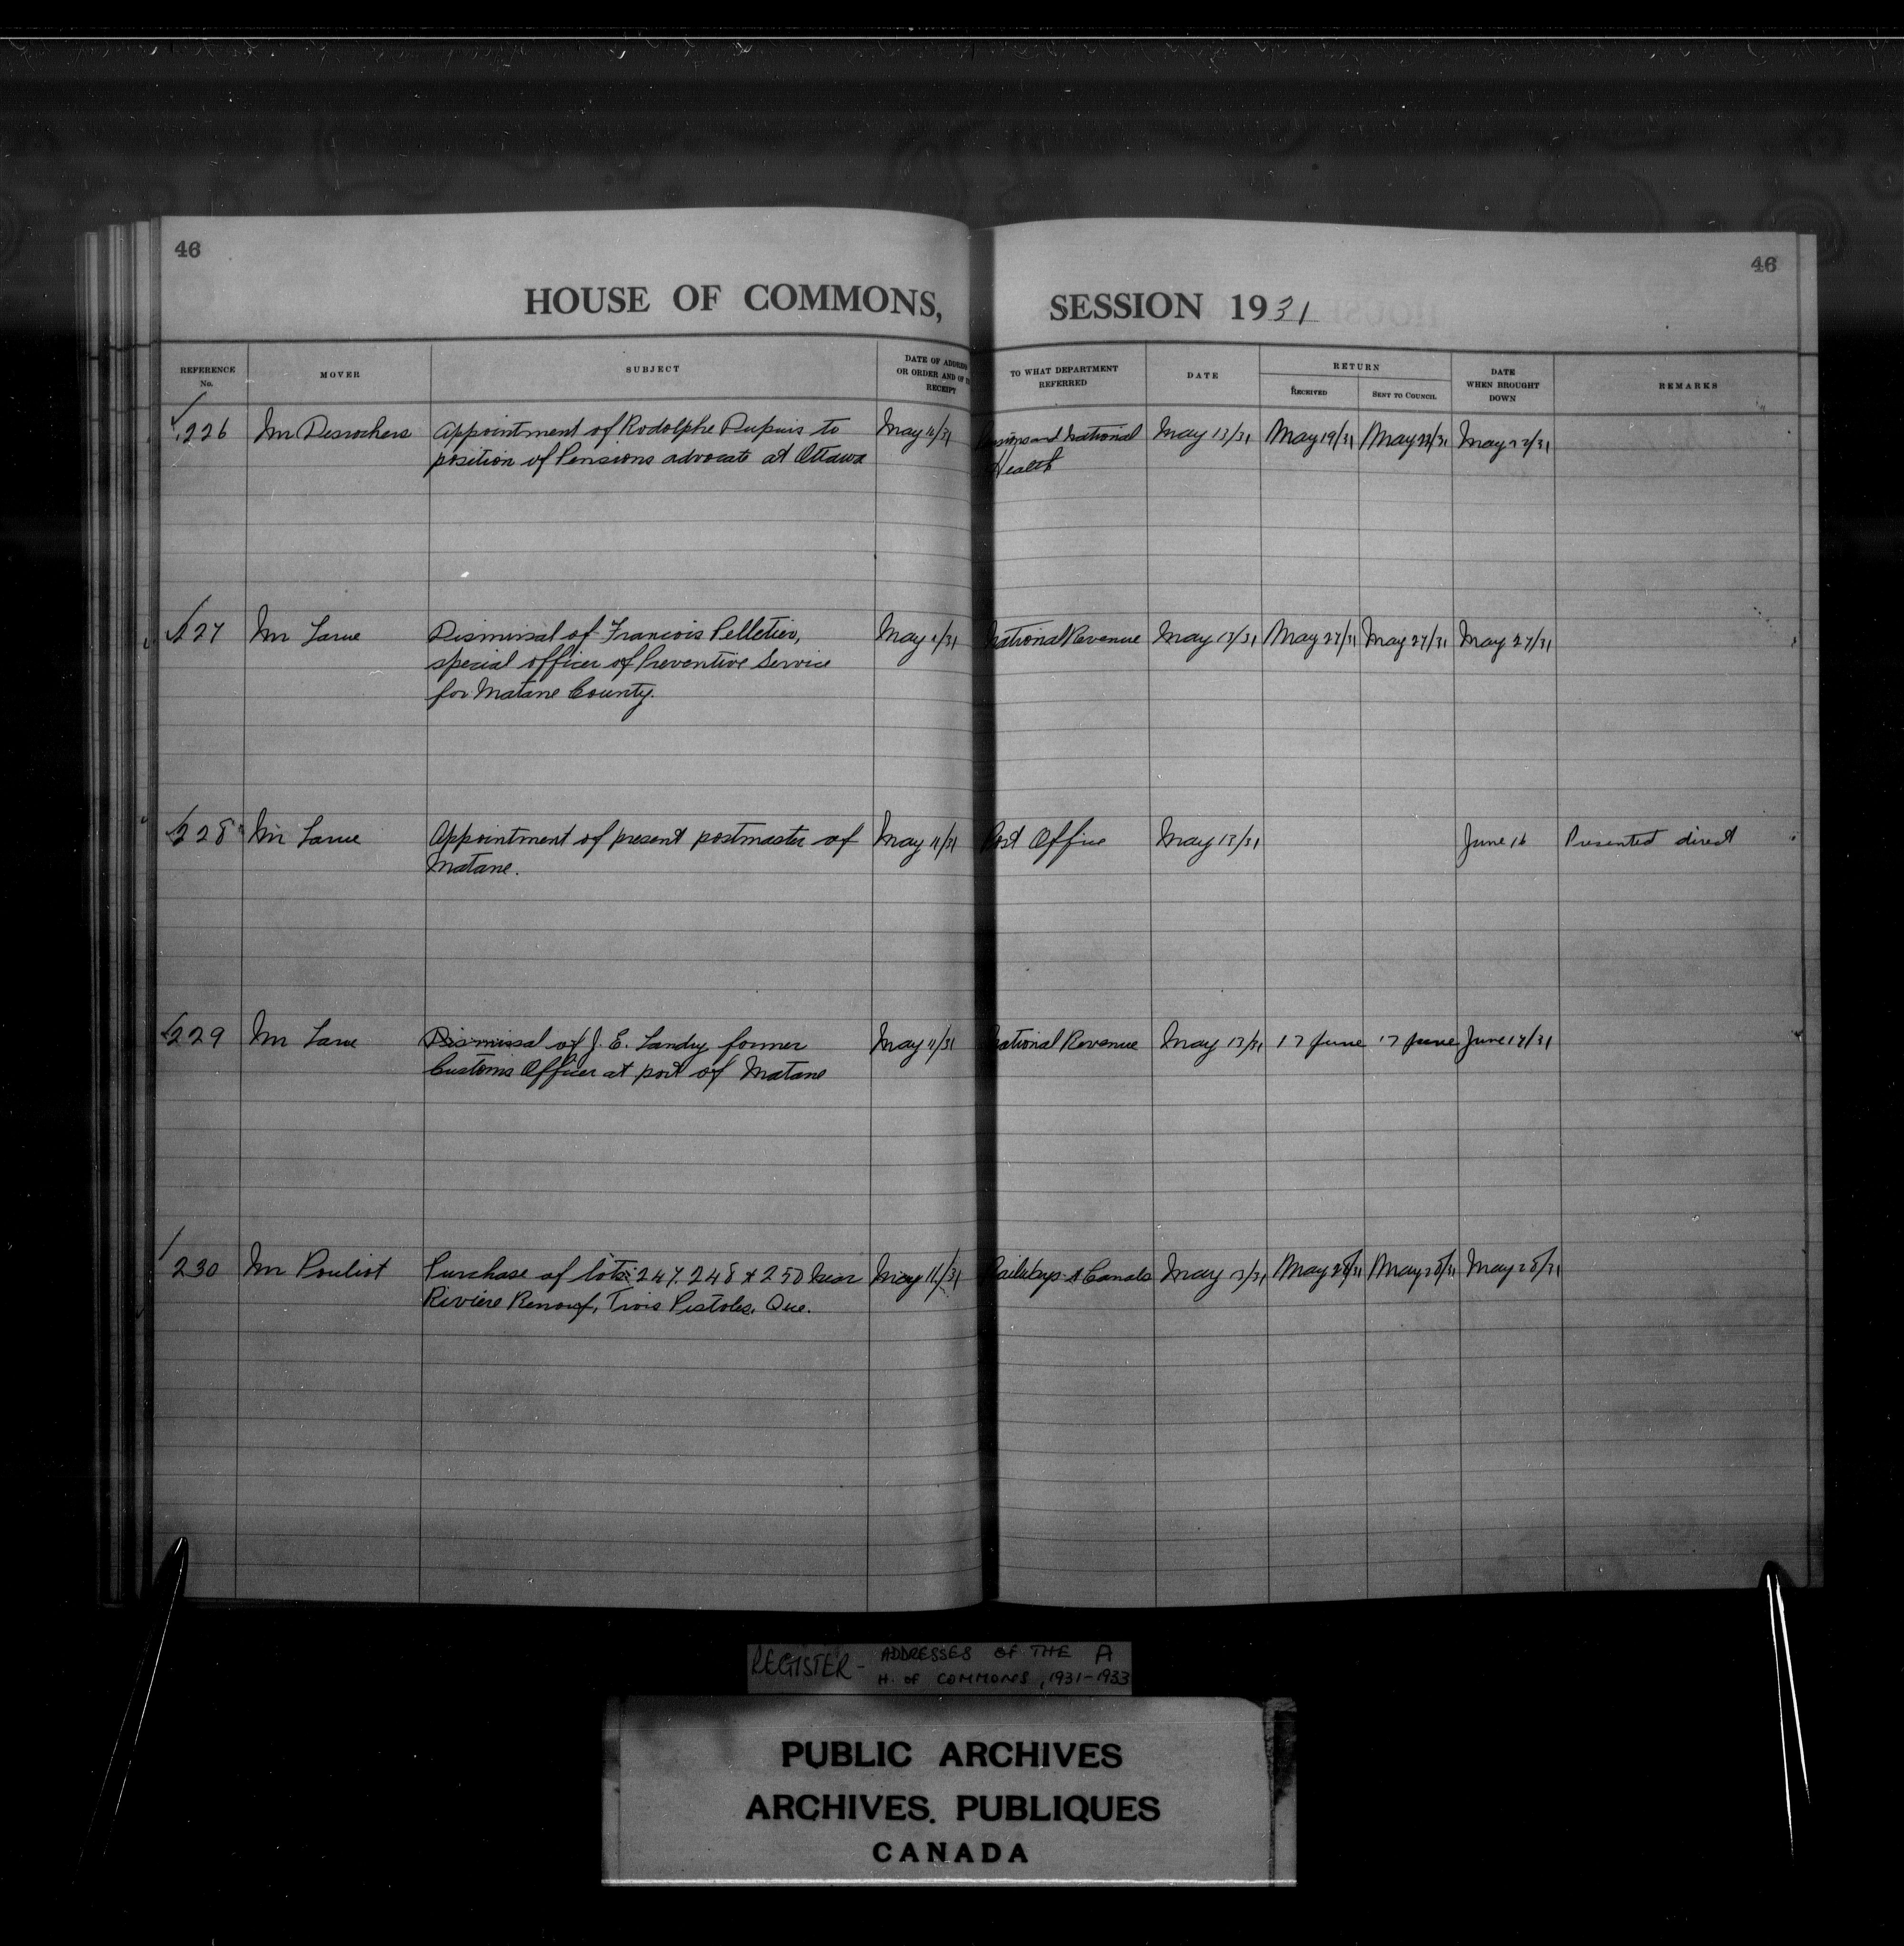 46
46
HOUSE OF COMMONS, SESSION 1931
REFERENCE No. MOVER SUBJECT DATE OF ADDRESS OR ORDER AND OF RECEIPT TO WHAT DEPARTMENT REFERRED DATE RETURN RECEIVED SENT TO COUNCIL DATE WHEN BROUGHT DOWN REMARKS
226 Mr Desrochers Appointment of Rodolphe Dupuis to May 11/31 Pensions and National May 13/31 May 19/31 May 22/31 May 22/31
position of Pensions advocate at Ottawa Health
227 Mr Larue Dismissal of Francois Pelletier, May 11/31 National Revenue May 13/31 May 27/31 May 27/31 May 27/31
special officer of Preventive Service
for Matane County.
228 Mr Larue Appointment of present postmaster of May 11/31 Post Office May 13/31 June 16 Presented direct
Matane.
229 Mr Larue Dismissal of J. E. Landry former May 11/31 National Revenue May 13/31 17 June 17 June June 17/31
Customs Officer at port of Matane
230 Mr Pouliot Purchase of lots 247. 248 & 250 near May 11/31 Railways & Canals May 13/31 May 28/31 May 28/31 May 28/31
Riviere Renouf, Trois Pistoles, Que.
REGISTER - ADDRESSES OF THE A
H. OF COMMONS, 1931-1933
PUBLIC ARCHIVES
ARCHIVES PUBLIQUES
CANADA